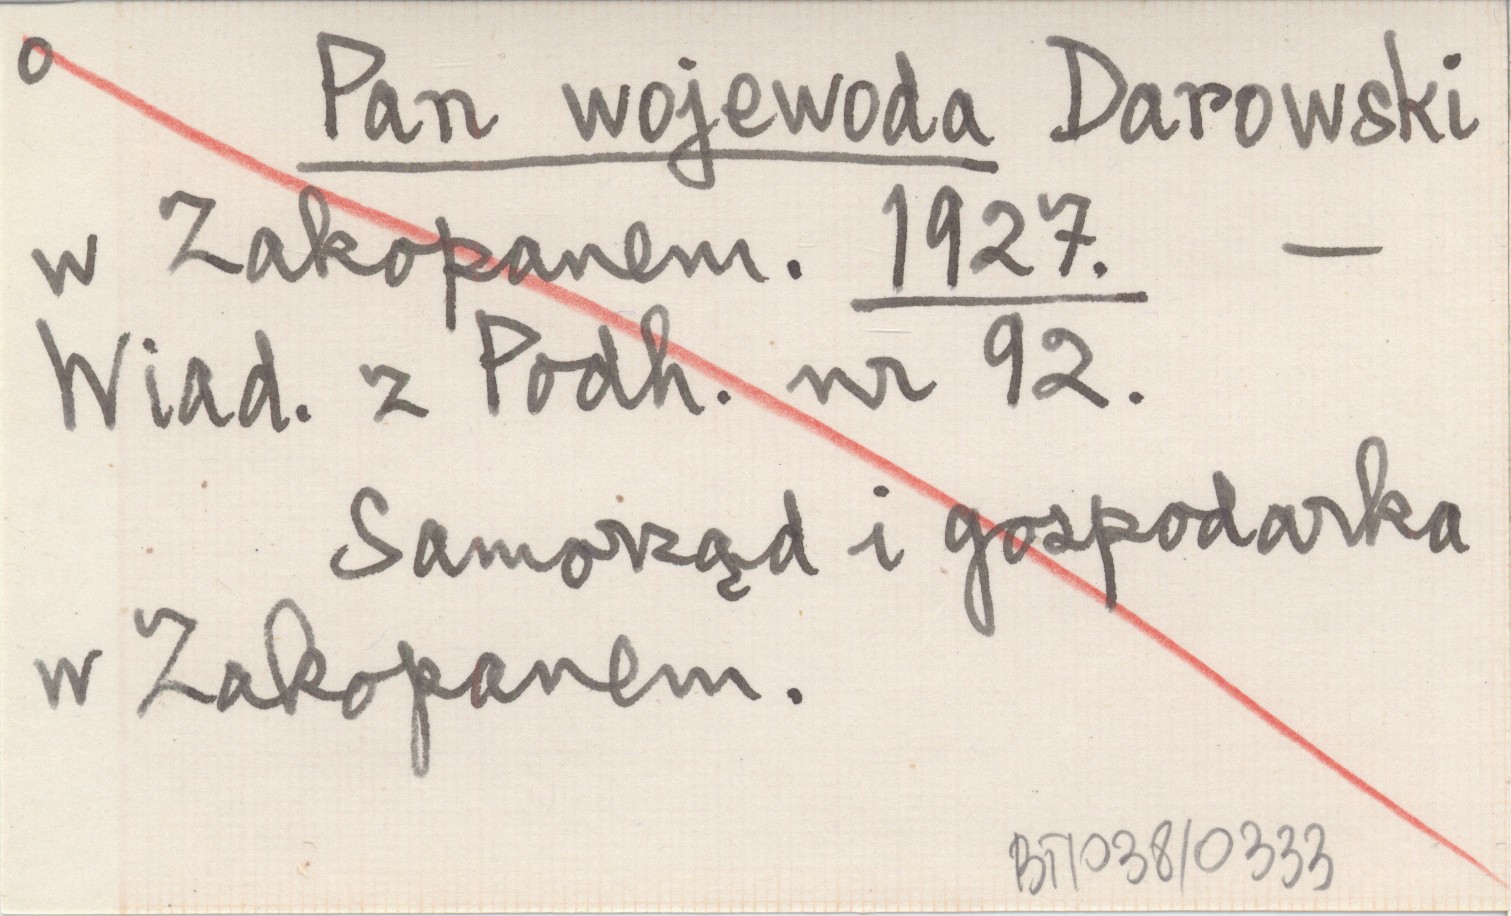 o Pan wojewoda Darowski
w Zakopanem. 1927. —
Wiad. z Podh. nr 92.
Samorząd i gospodarka
w Zakopanem.
BT/038/0333